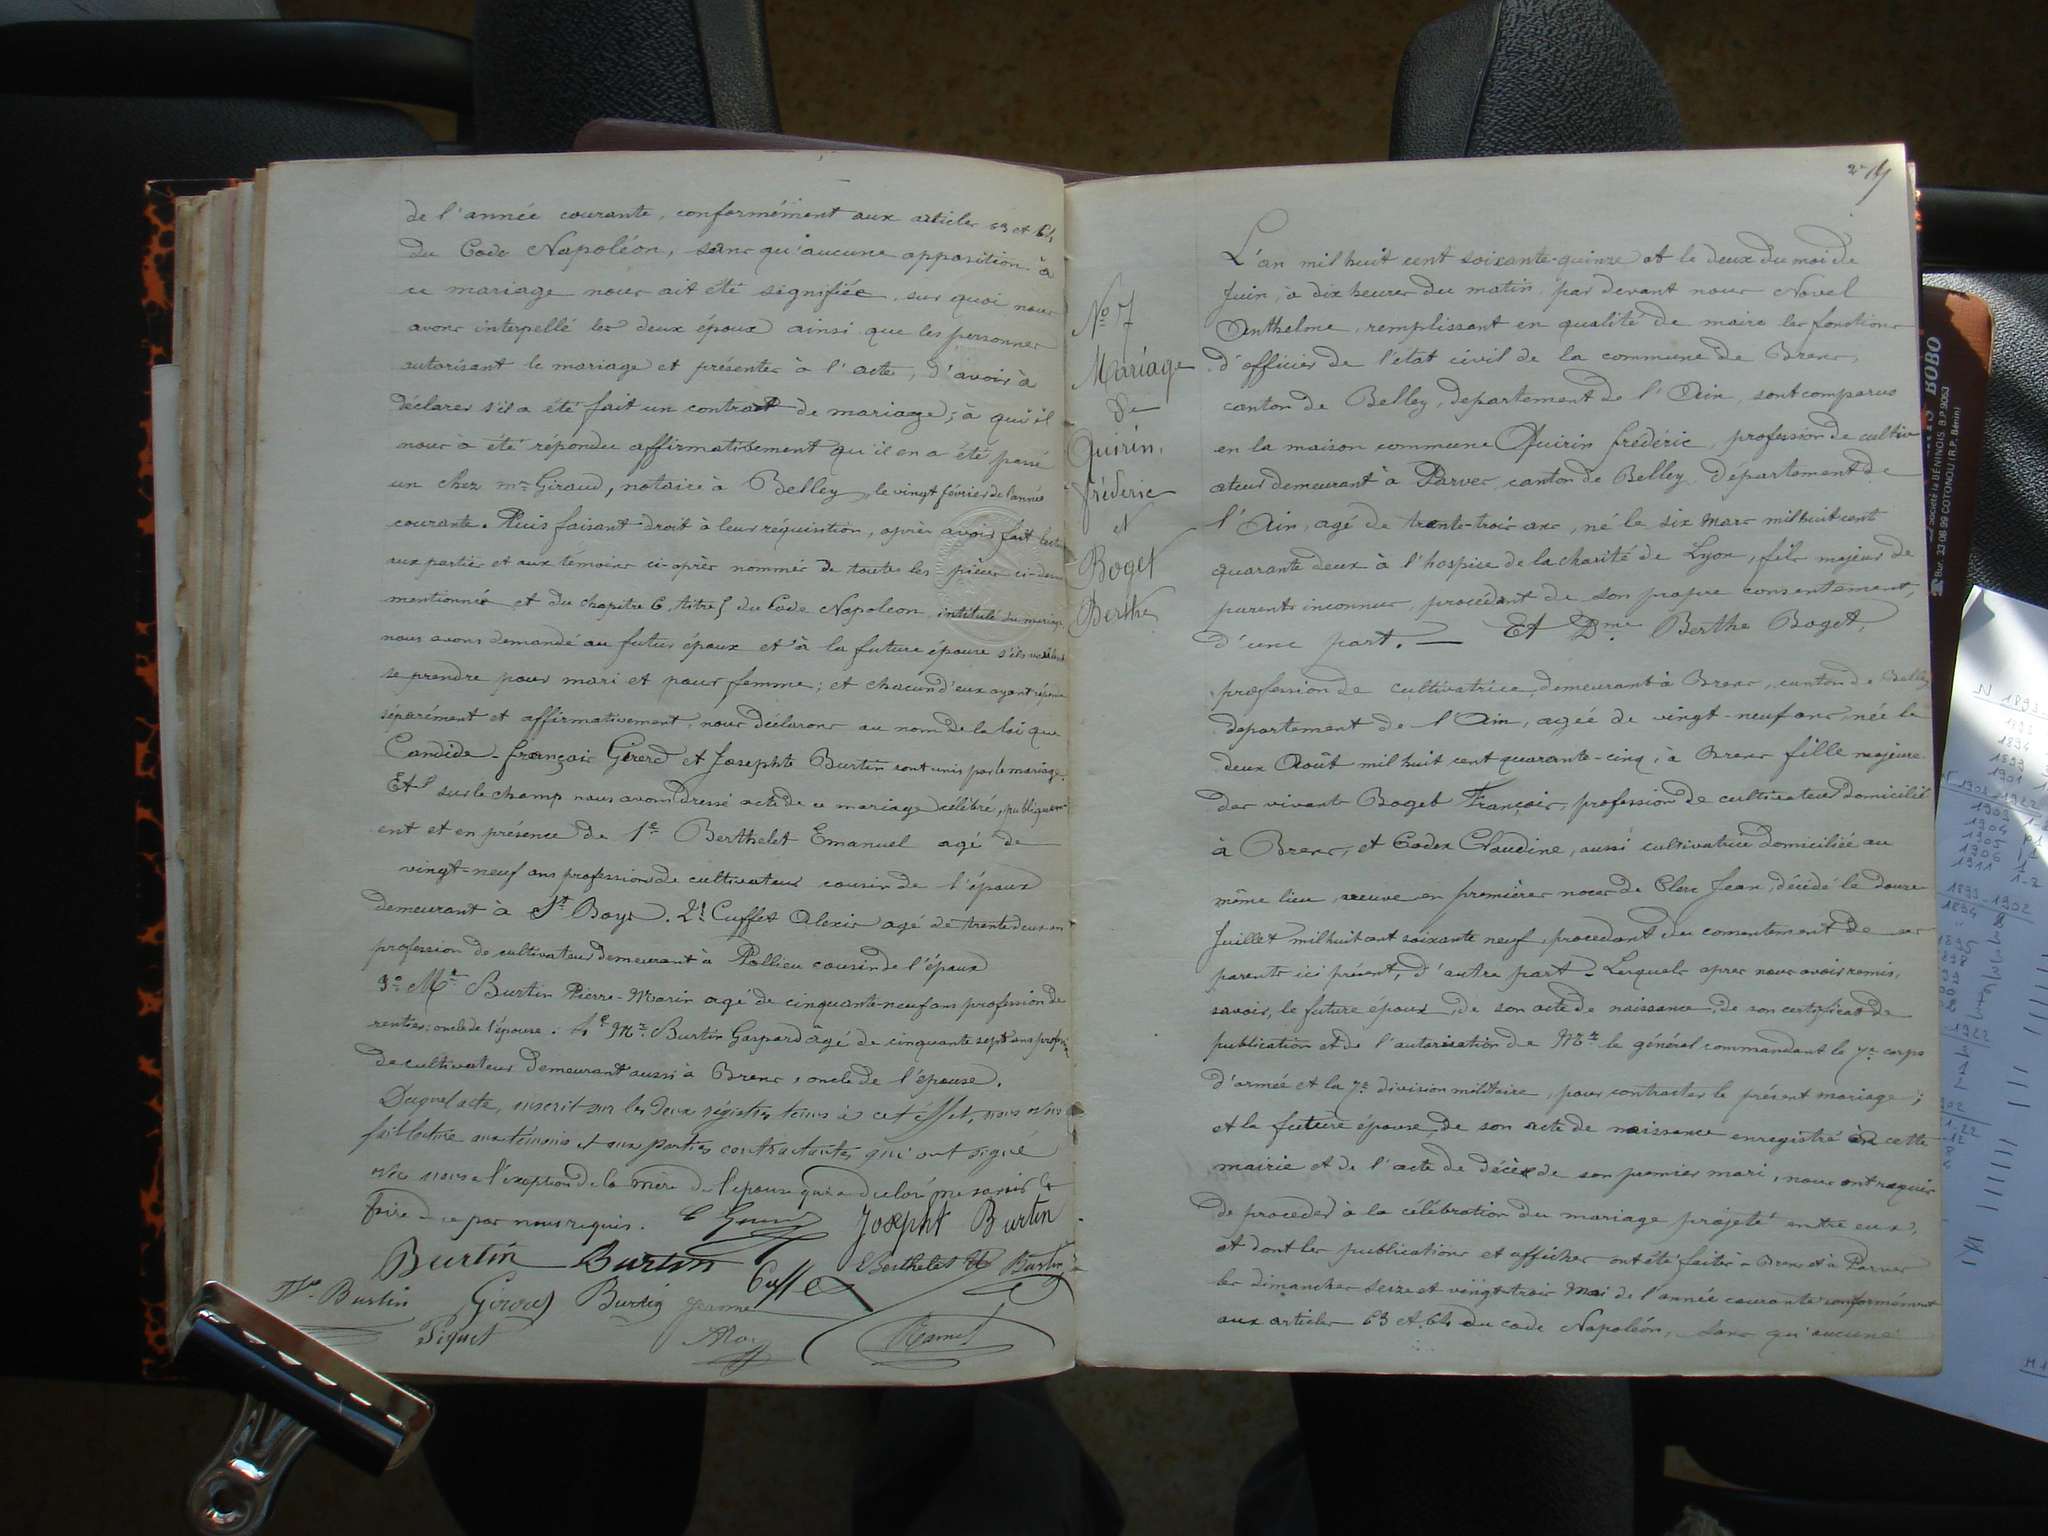 de l'année courante, conformément aux articles 63 et 64
du Code Napoléon, sans qu'aucune opposition à
ce mariage nous ait été signifiée, sur quoi nous
avons interpellé les deux époux ainsi que les personnes
autorisant le mariage et présentes à l'acte, d'avoir à
déclarer s'il a été fait un contrat de mariage; à quoi il
nous a été répondu affirmativement qu'il en a été passé
un chez mr Giraud, notaire à Belley, le vingt février de l'année
courante. Puis faisant droit à leur réquisition, après avoir fait lecture
aux parties et aux témoins ci-après nommés de toutes les pièces ci-dessus
mentionnées et du chapitre 6, titre 5 du Code Napoléon, intitulé du mariage
nous avons demandé au futur époux et à la future épouse s'ils veulent
se prendre pour mari et pour femme; et chacun d'eux ayant répondu
séparément et affirmativement, nous déclarons au nom de la loi que
Candide-françois Girerd et Josephte Burtin sont unis par le mariage.
Et sur le champ nous avons dressé acte de ce mariage célébré, publiquem-
ent et en présence de 1e Berthelet Emanuel agé de
vingt-neuf ans profession de cultivateur cousin de l'époux
demeurant à St Boys. 2e Cuffet Alexis agé de trente deux ans
profession de cultivateur demeurant à Pollieu cousin de l'époux
3e Mr Burtin Pierre-Marin agé de cinquante-neuf ans profession de
rentier; oncle de l'épouse. 4e Mr Burtin Gaspard âgé de cinquante sept ans profession
de cultivateur demeurant aussi à Brens, oncle de l'épouse.
Duquel acte, inscrit sur les deux régistres tenus à cet effet, nous avons
fait lecture aux témoins et aux parties contractantes qui ont signé
avec nous à l'exception de la mère de l'épouse qui a déclaré ne savoir le
faire de ce par nous requis.
Josepht Burtin
Burtin Burtin Cuffet Berthelet E Burtin
Burtin Girerd Burtin Jeanne
Piquet
2 -
N° 7
Mariage
de
Quirin,
fréderic
et
Boget
Berthe
L'an mil huit cent soixante-quinze et le deux du mois de
Juin, à dix heures du matin par devant nous Novel
Anthelme, remplissant en qualité de maire les fonctions
d'officier de l'état civil de la commune de Brens,
canton de Belley, departement de l'Ain, sont comparus
en la maison commune Quirin frédéric, profession de cultiv
ateur demeurant à Parves, canton de Belley, département de
l'Ain, agé de trente-trois ans, né le six Mars mil huit cent
quarante deux à l'hospice de la charité de Lyon, fils majeur de
parents inconnus, procédant de son propre consentement,
d'une part. — Et Dme Berthe Boget,
profession de cultivatrice, demeurant à Brens, canton de Belley
departement de l'Ain, agée de vingt-neuf ans, née le
deux Août mil huit cent quarante-cinq, à Brens fille majeure
des vivants Boget François, profession de cultivateur domicilié
à Brens, et Codex Claudine, aussi cultivatrice domiciliée au
même lieu, veuve en premières noces de Clerc Jean, décédé le douze
Juillet mil huit cent soixante neuf, procedant du consentement de ses
parents ici présent, d'autre part. Lesquels apres nous avoir remis,
savoir, le future époux, de son acte de naissance, de son certificat de
publication et de l'autorisation de Mr le général commandant le 7e corps
d'armée et la 7e division militaire, pour contracter le présent mariage;
et la future épouse, de son acte de naissance enregistré en cette
mairie et de l'acte de décès de son premier mari, nous ont requis
de proceder à la célébration du mariage projeté entre eux,
et dont les publications et affiches ont été faites à Brens et à Parves
les dimanches seize et vingt-trois Mai de l'année courante conformément
aux articles 63 et 64 du code Napoléon, sans qu'aucune